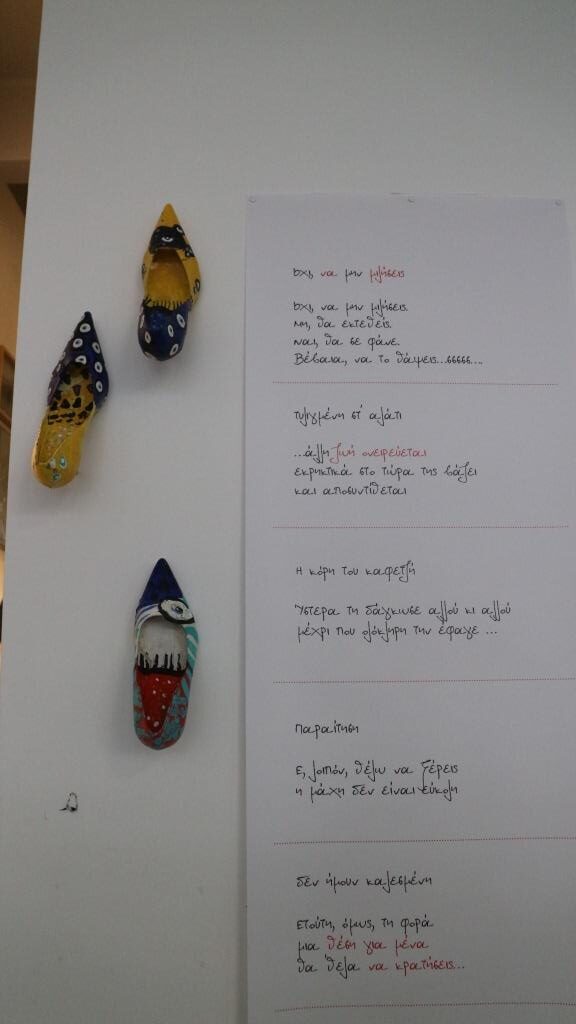 όχι, να μην μιλήσεις
όχι, να μην μιλήσεις.
μη, θα εκτεθείς.
ναι, θα σε φάνε.
Βέβαια, να το θάψεις...σσσσσ....
τυλιγμένη στ' αλάτι
...άλλη ζωή ονειρεύεται
εκρηκτικά στο τώρα της βάζει
και αποσυντίθεται
Η κόρη του καφετζή
Ύστερα τη δάγκωσε αλλού κι αλλού
μέχρι που ολόκληρη την έφαγε ...
Παραίτηση
Ε, λοιπόν, θέλω να ξέρεις
η μάχη δεν είναι εύκολη
δεν ήμουν καλεσμένη
Ετούτη, όμως, τη φορά
μια θέση για μένα
θα 'θελα να κρατήσεις...